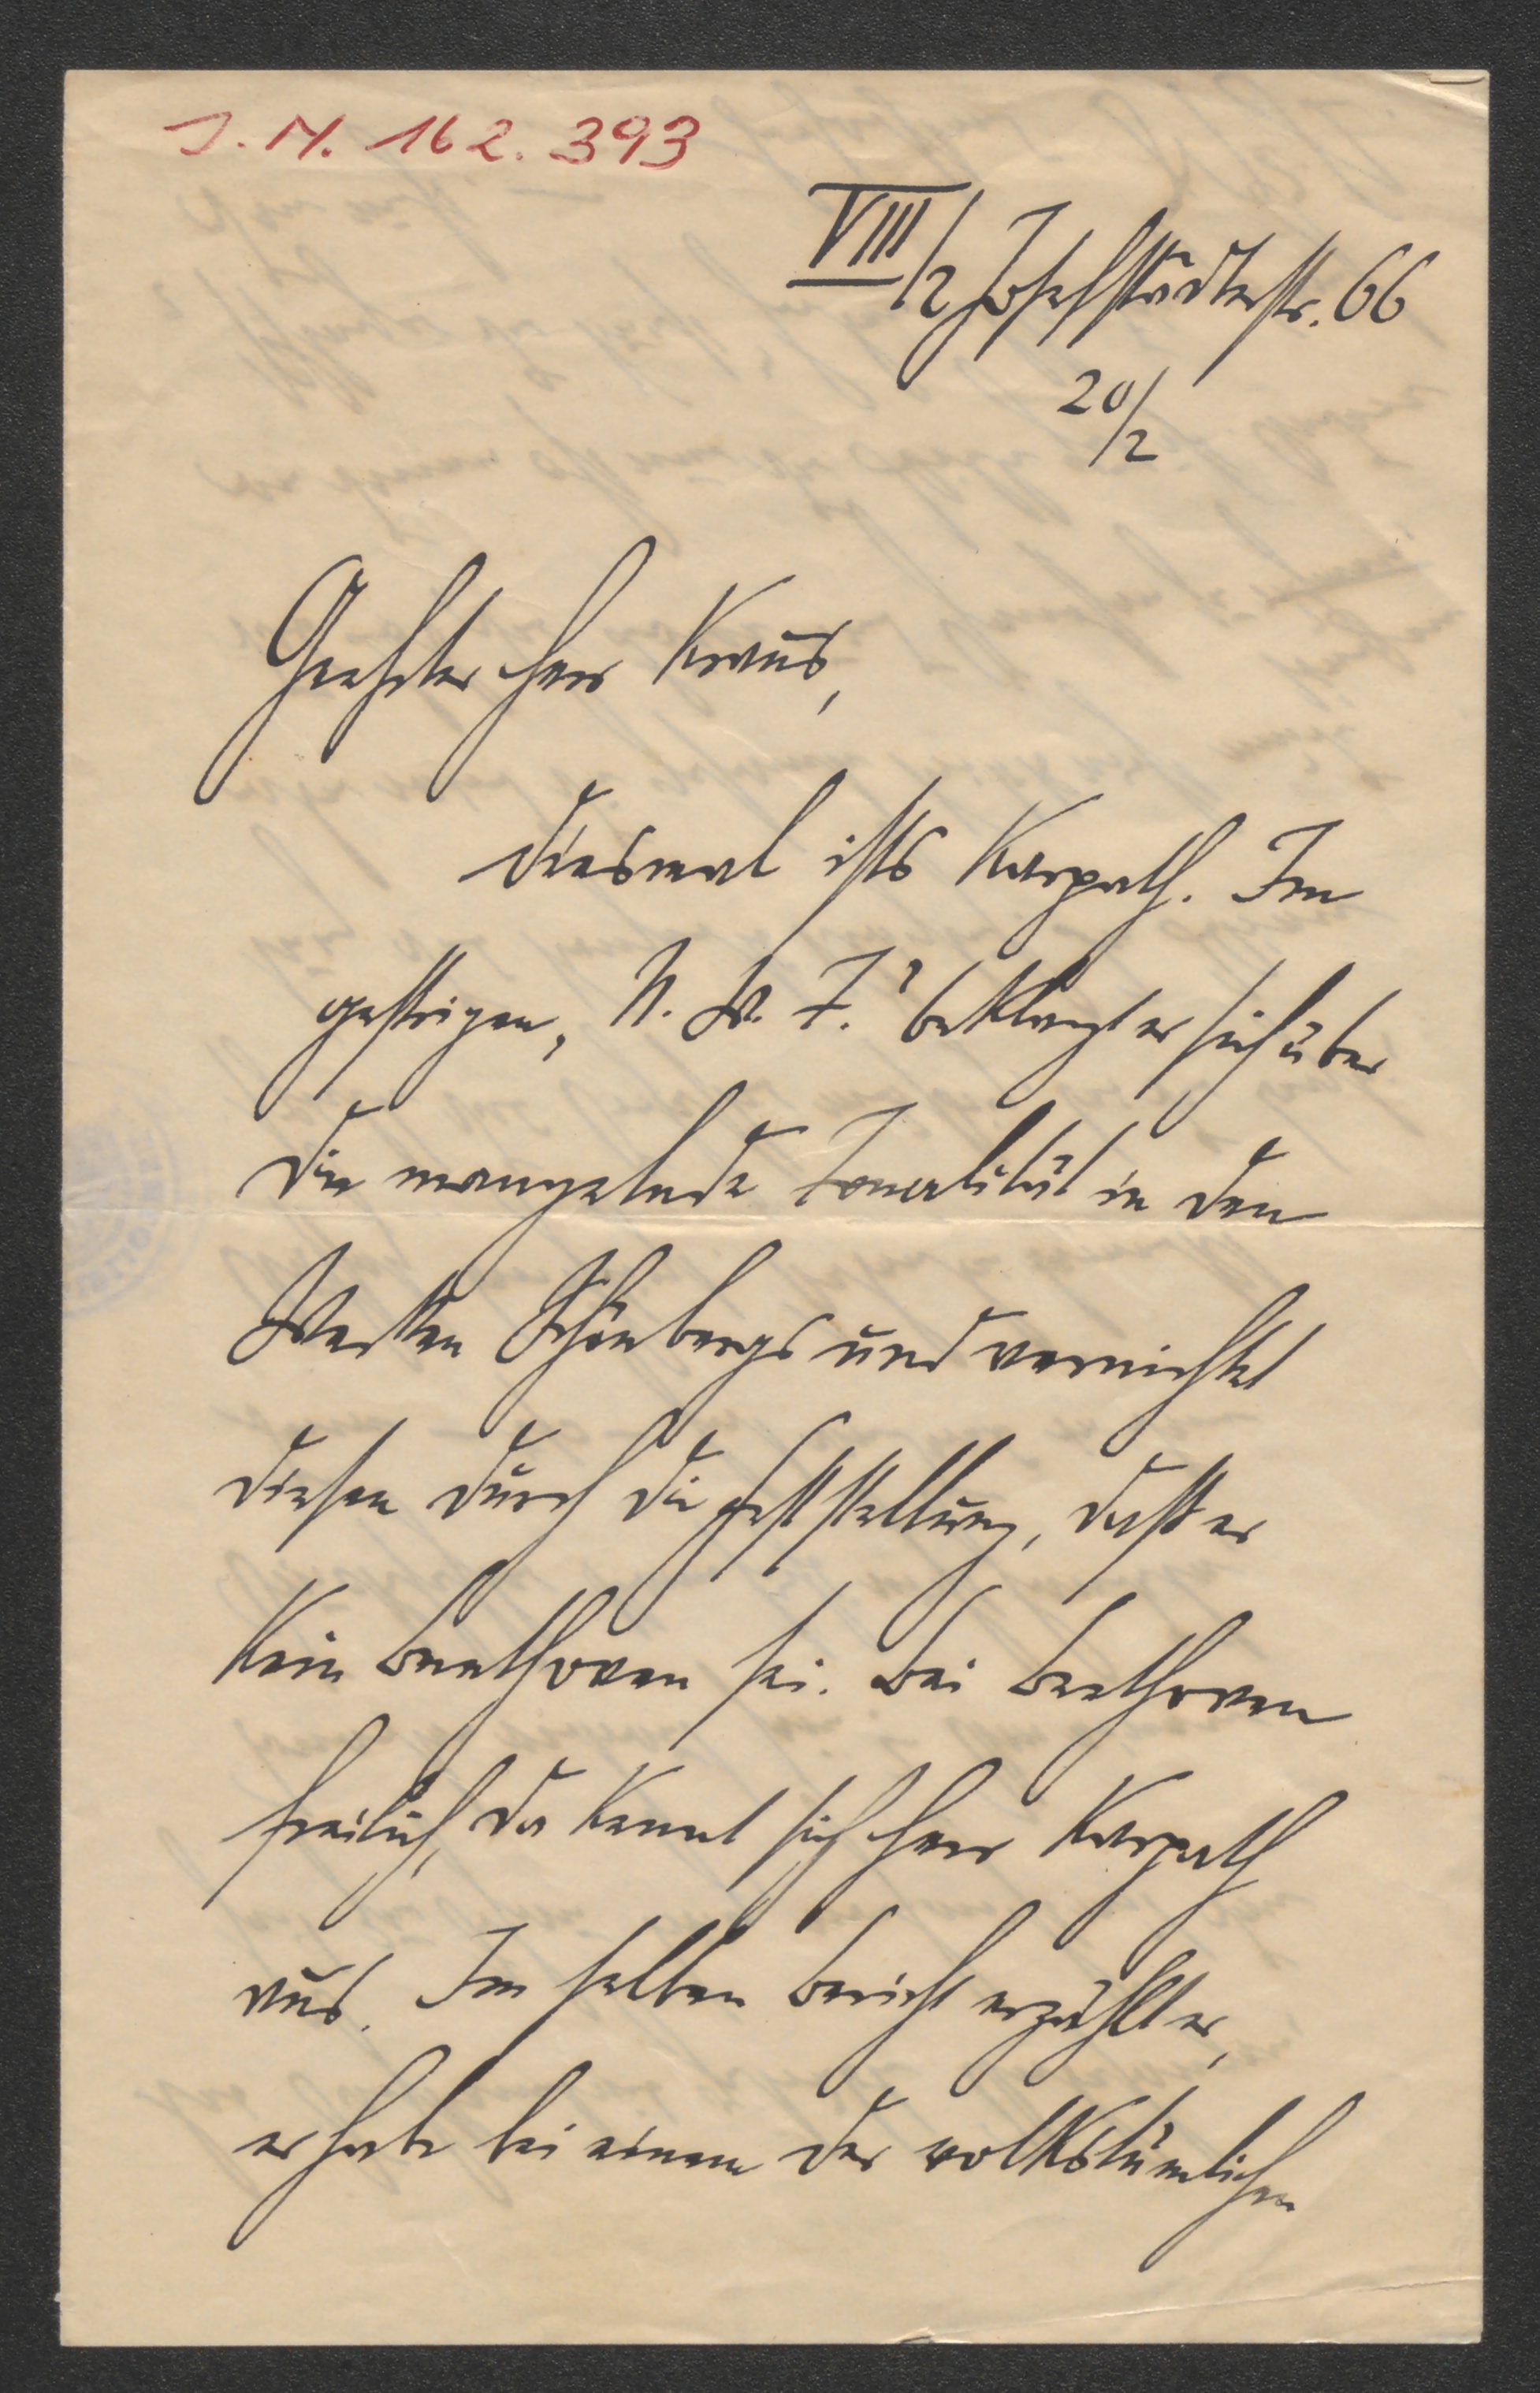 J. N. 162.393
VIII/2 Josefstädterstr. 66
20/2
Geehrter Herr Kraus,
diesmal ists Karpath. Im
gestrigen „N. W. T." beklagt er sich über
die mangelnde Tonalität in den
Werken Schönbergs und vernichtet
diesen durch die Feststellung, daß er
kein Beethoven sei. Bei Beethoven
freilich, da kennt sich Herr Karpath
aus. Im selben Bericht erzählt er,
er habe bei einem der volkstümlichen